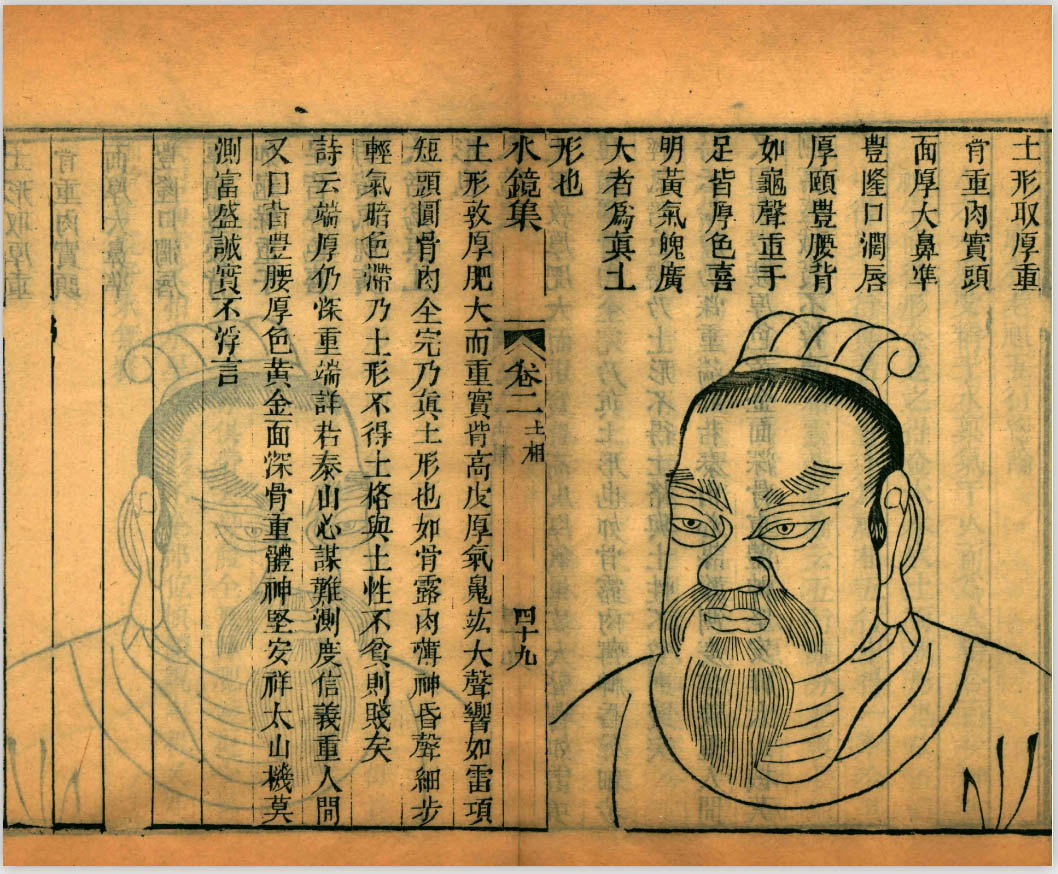 土形取厚重
背重肉實頭
面厚大鼻準
豊隆口濶唇
厚頤豊腰背
如龜聲重手
足皆厚色喜
明黃氣魄廣
大者爲眞土
形也
水鏡集
卷二 土相
四十九
土形敦厚肥大而重實背高皮厚氣魄宏大聲響如雷項
短頭圓骨肉全完乃眞土形也如骨露肉薄神昏聲細步
輕氣暗色滯乃土形不得土格與土性不貧則賤矣
詩云端厚仍深重端詳若泰山心謀難測度信義重人間
又曰背豊腰厚色黃金面深骨重體神堅安祥太山機莫
測富盛誠實不浮言